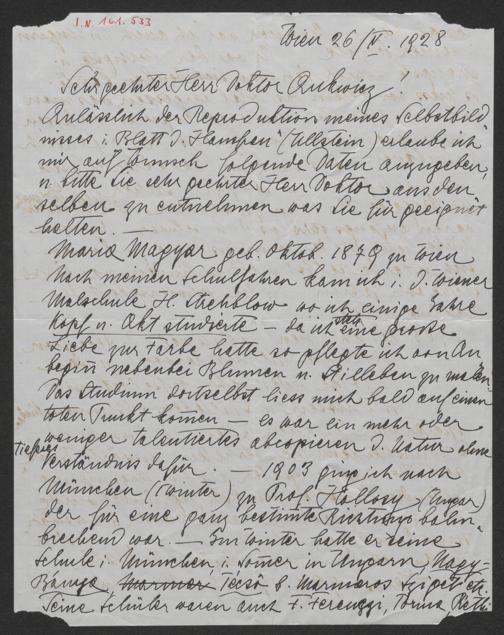 I.N. 161.533
Wien 26/II. 1928
Sehrgeehrter Herr Doktor !
Anlässlich der Reproduktion meines Selbstbild
nisses i. Blatt D. (Ullstein) erlaube ich
mir auf Wunsch folgende Daten anzugeben,
u. bitte Sie sehr geehrter Herr Doktor aus den
selben zu entnehmen was Sie für geeignet
halten. —
Maria Magyar geb. Oktob. 1879 zu Wien
Nach meinen Schuljahren kam ich i. d. Wiener
Malschule H. Strehblow wo ich einige Jahre
Kopf u. Akt studierte — da ich stets eine grosse
Liebe zur Farbe hatte so pflegte ich von An
beginn nebenbei Blumen u. Stilleben zu malen
Das Studium dortselbst liess mich bald auf einen
toten Punkt komen — es war ein mehr oder
weniger talentiertes abcopieren d. Natur ohne
tieferes Verständnis dafür. — 1903 ging ich nach
München (Winter) zu Prof. Hollosy (Ungar)
der für eine ganz bestimte Richtung bahn-
brechend war. — Im Winter hatte er seine
Schule i. München, i. Somer in Ungarn, Nagy-
Banya, Tecsö b. Marmaros Sziget etc.
Seine Schüler waren auch F. Ferenczy, Torma, Reth